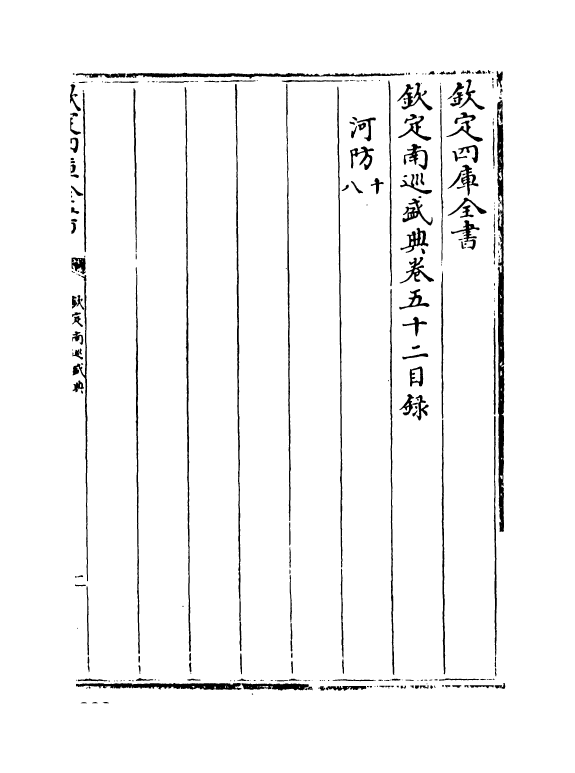 欽定四庫全書
欽定南巡盛典卷五十二目録
河防十八
欽定四庫全書
欽定南巡盛典